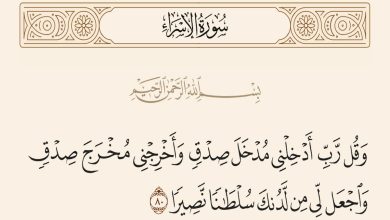 سُورَةُ الإِسْرَاءِ
بِسْمِ اللَّهِ الرَّحْمَٰنِ الرَّحِيمِ
وَقُل رَّبِّ أَدْخِلْنِي مُدْخَلَ صِدْقٍ وَأَخْرِجْنِي مُخْرَجَ صِدْقٍ
وَٱجْعَل لِّي مِن لَّدُنكَ سُلْطَٰنًا نَّصِيرًا ٨٠